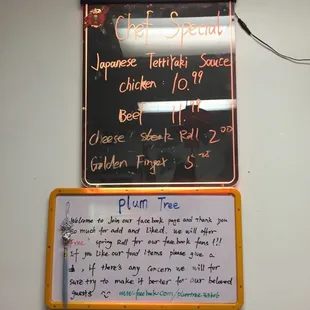 Chef Special
Japanese Tettiyaki Sauce
chicken: 10.99
Beef 11.99
cheese steak Roll: 2.00
Golden Finger: 5
plum Tree
Welcome to Join our facebook page and thank you
so much for add and liked. we will offer
"Free" spring Roll for our facebook fans !!!
If you like our food items please give a
, if there's any concern we will for
sure try to make it better for our beloved
guests
www.facebook.com/plumtree